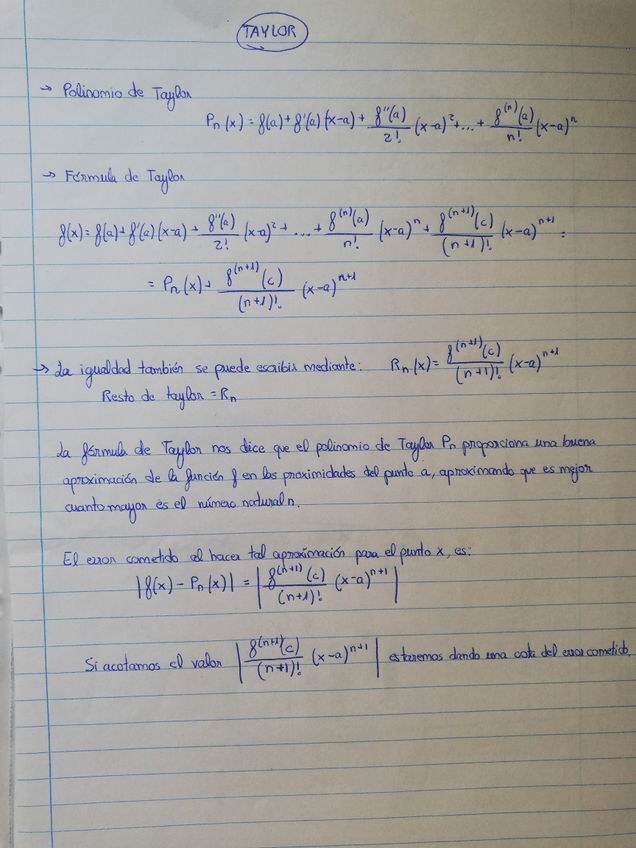 TAYLOR
→ Polinomio de Taylor
Pn(x) = f(a) + f'(a)(x-a) + f''(a)/2! (x-a)² + ... + f⁽ⁿ⁾(a)/n! (x-a)ⁿ
→ Fórmula de Taylor
f(x) = f(a) + f'(a)(x-a) + f''(a)/2! (x-a)² + ... + f⁽ⁿ⁾(a)/n! (x-a)ⁿ + f⁽ⁿ⁺¹⁾(c)/(n+1)! (x-a)ⁿ⁺¹ =
= Pn(x) + f⁽ⁿ⁺¹⁾(c)/(n+1)! (x-a)ⁿ⁺¹
→ La igualdad también se puede escribir mediante: Rn(x) = f⁽ⁿ⁺¹⁾(c)/(n+1)! (x-a)ⁿ⁺¹
Resto de taylor = Rn
La fórmula de Taylor nos dice que el polinomio de Taylor Pn proporciona una buena
aproximación de la función f en las proximidades del punto a, aproximando que es mejor
cuanto mayor es el número natural n.
El error cometido al hacer tal aproximación para el punto x, es:
|f(x) - Pn(x)| = |f⁽ⁿ⁺¹⁾(c)/(n+1)! (x-a)ⁿ⁺¹|
Si acotamos el valor |f⁽ⁿ⁺¹⁾(c)/(n+1)! (x-a)ⁿ⁺¹| estaremos dando una cota del error cometido.